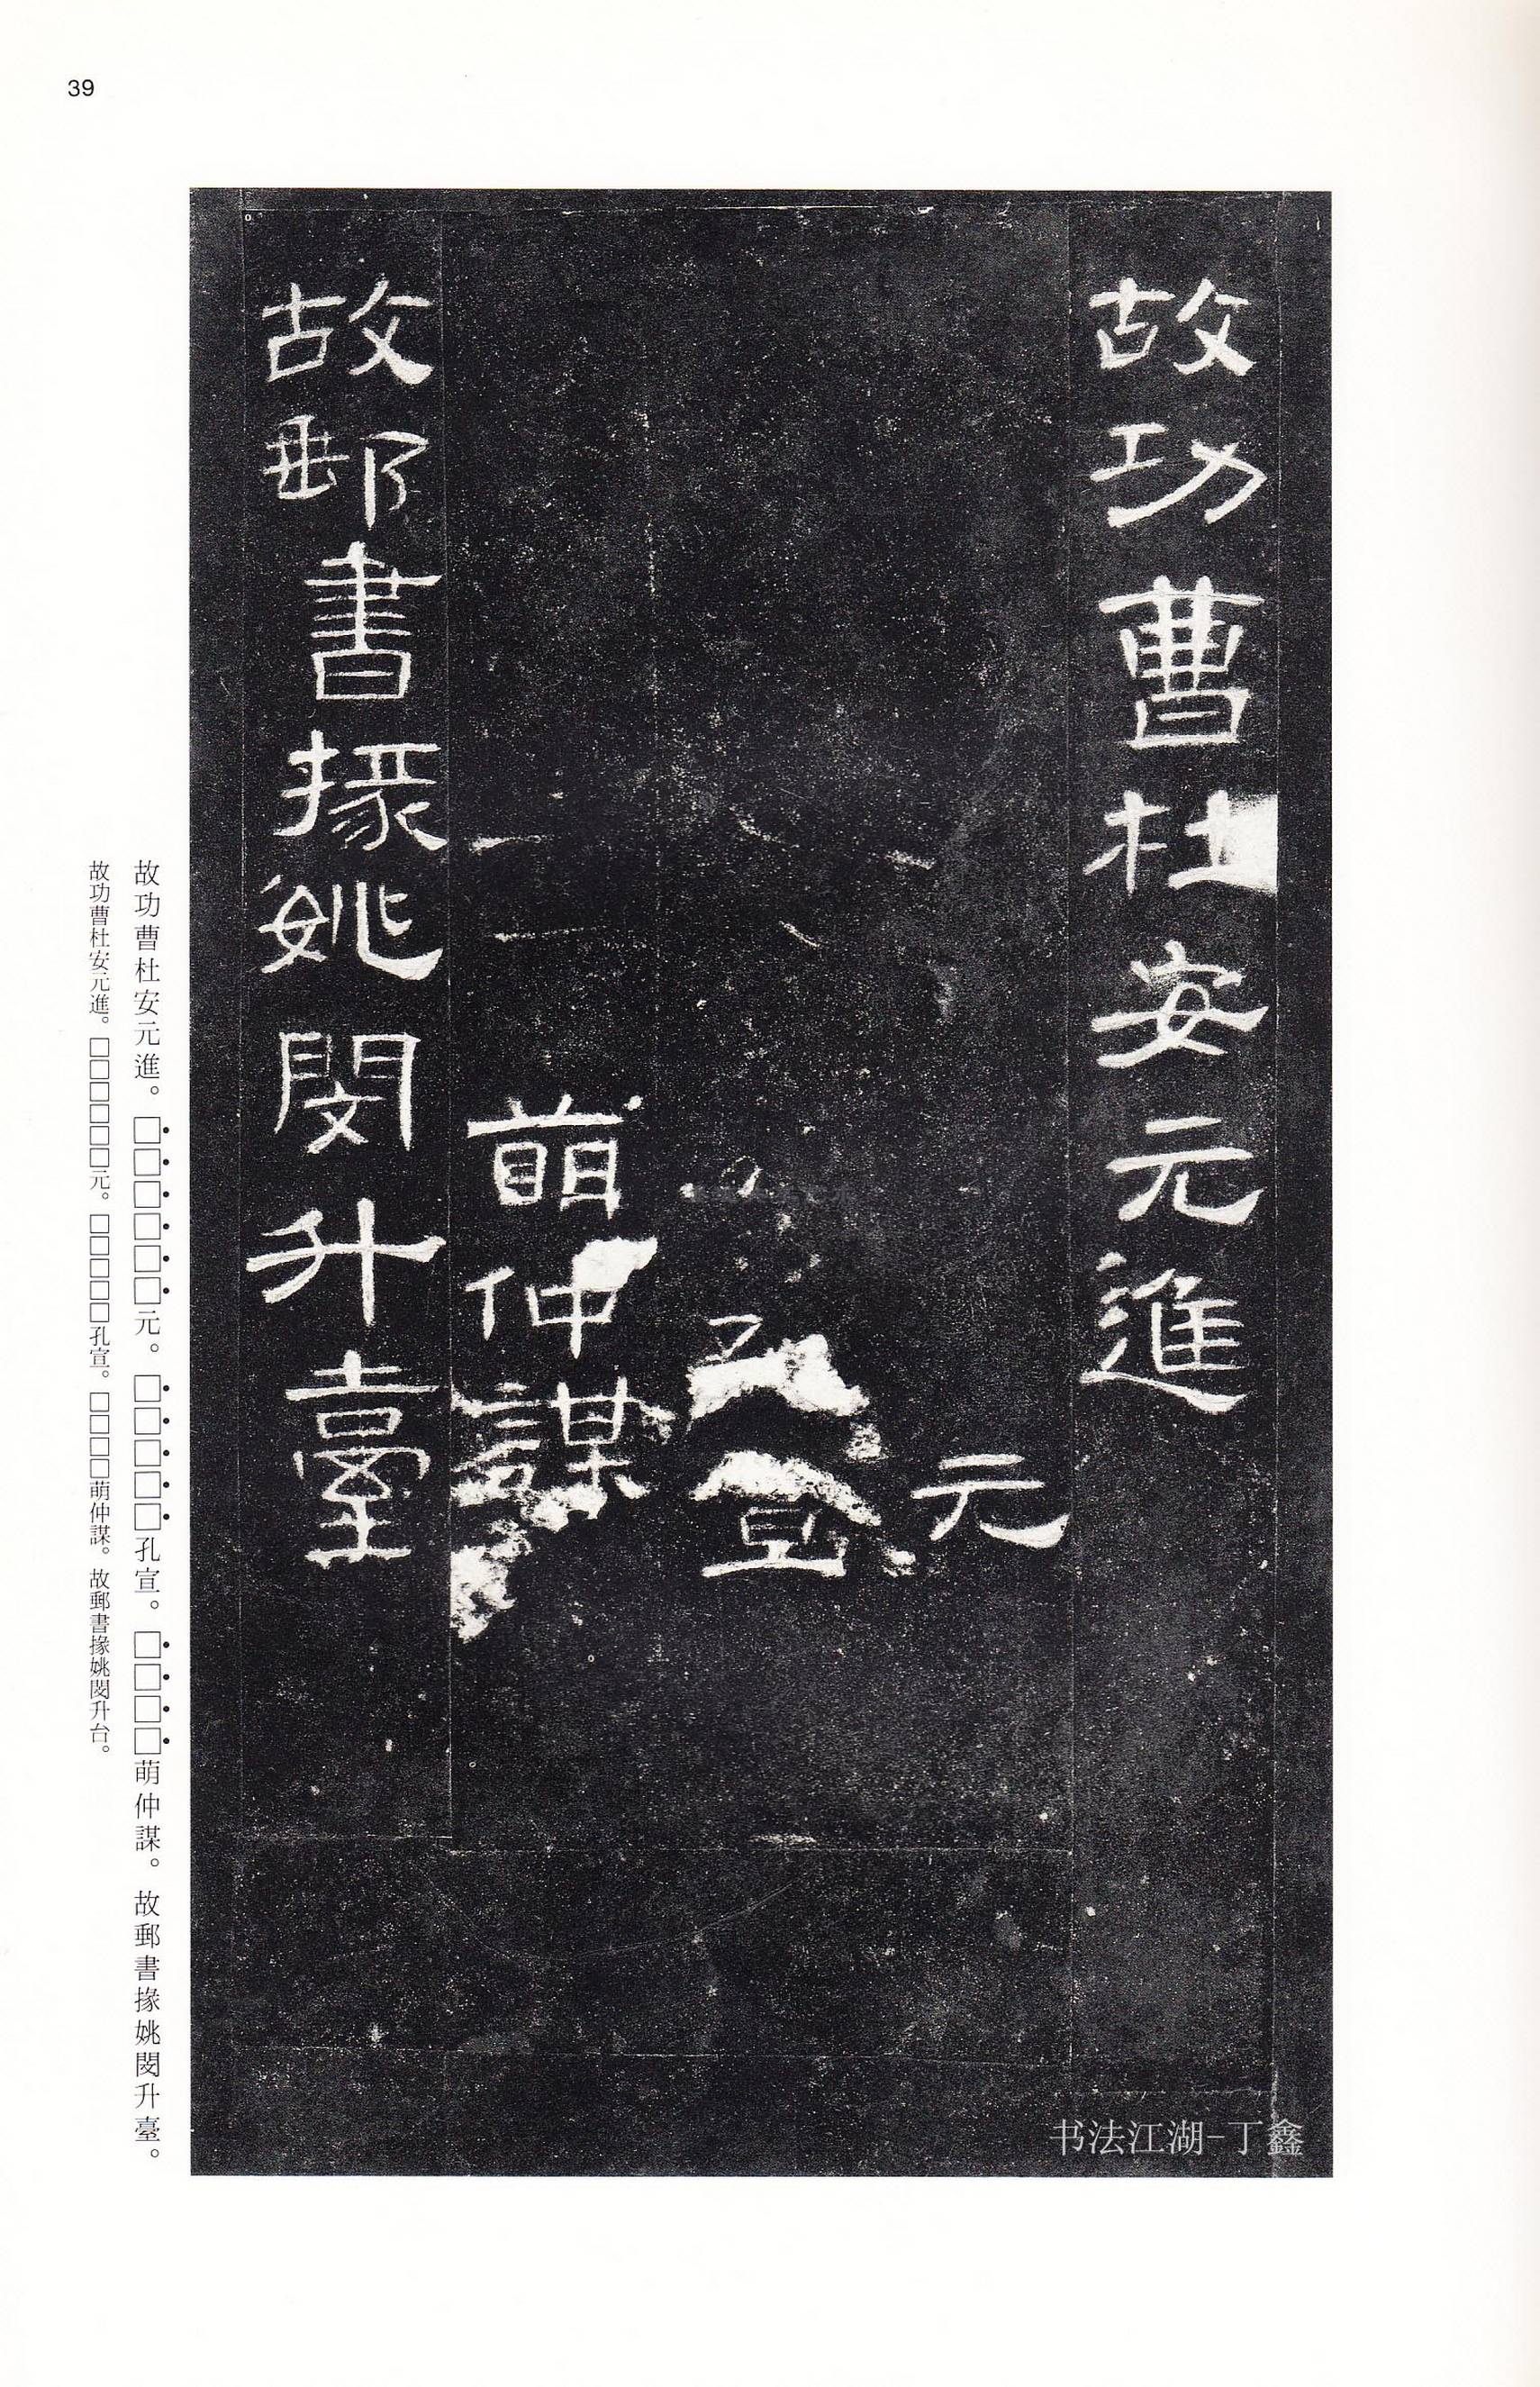 39
故功曹杜安元進
元
孔宣
萌仲謀
故郵書掾姚閔升臺
故功曹杜安元進。□□□□□□元。□□□□□孔宣。□□□□萌仲謀。故郵書掾姚閔升臺。
故功曹杜安元進。□□□□□□元。□□□□□孔宣。□□□□萌仲謀。故郵書掾姚閔升台。
书法江湖-丁鑫